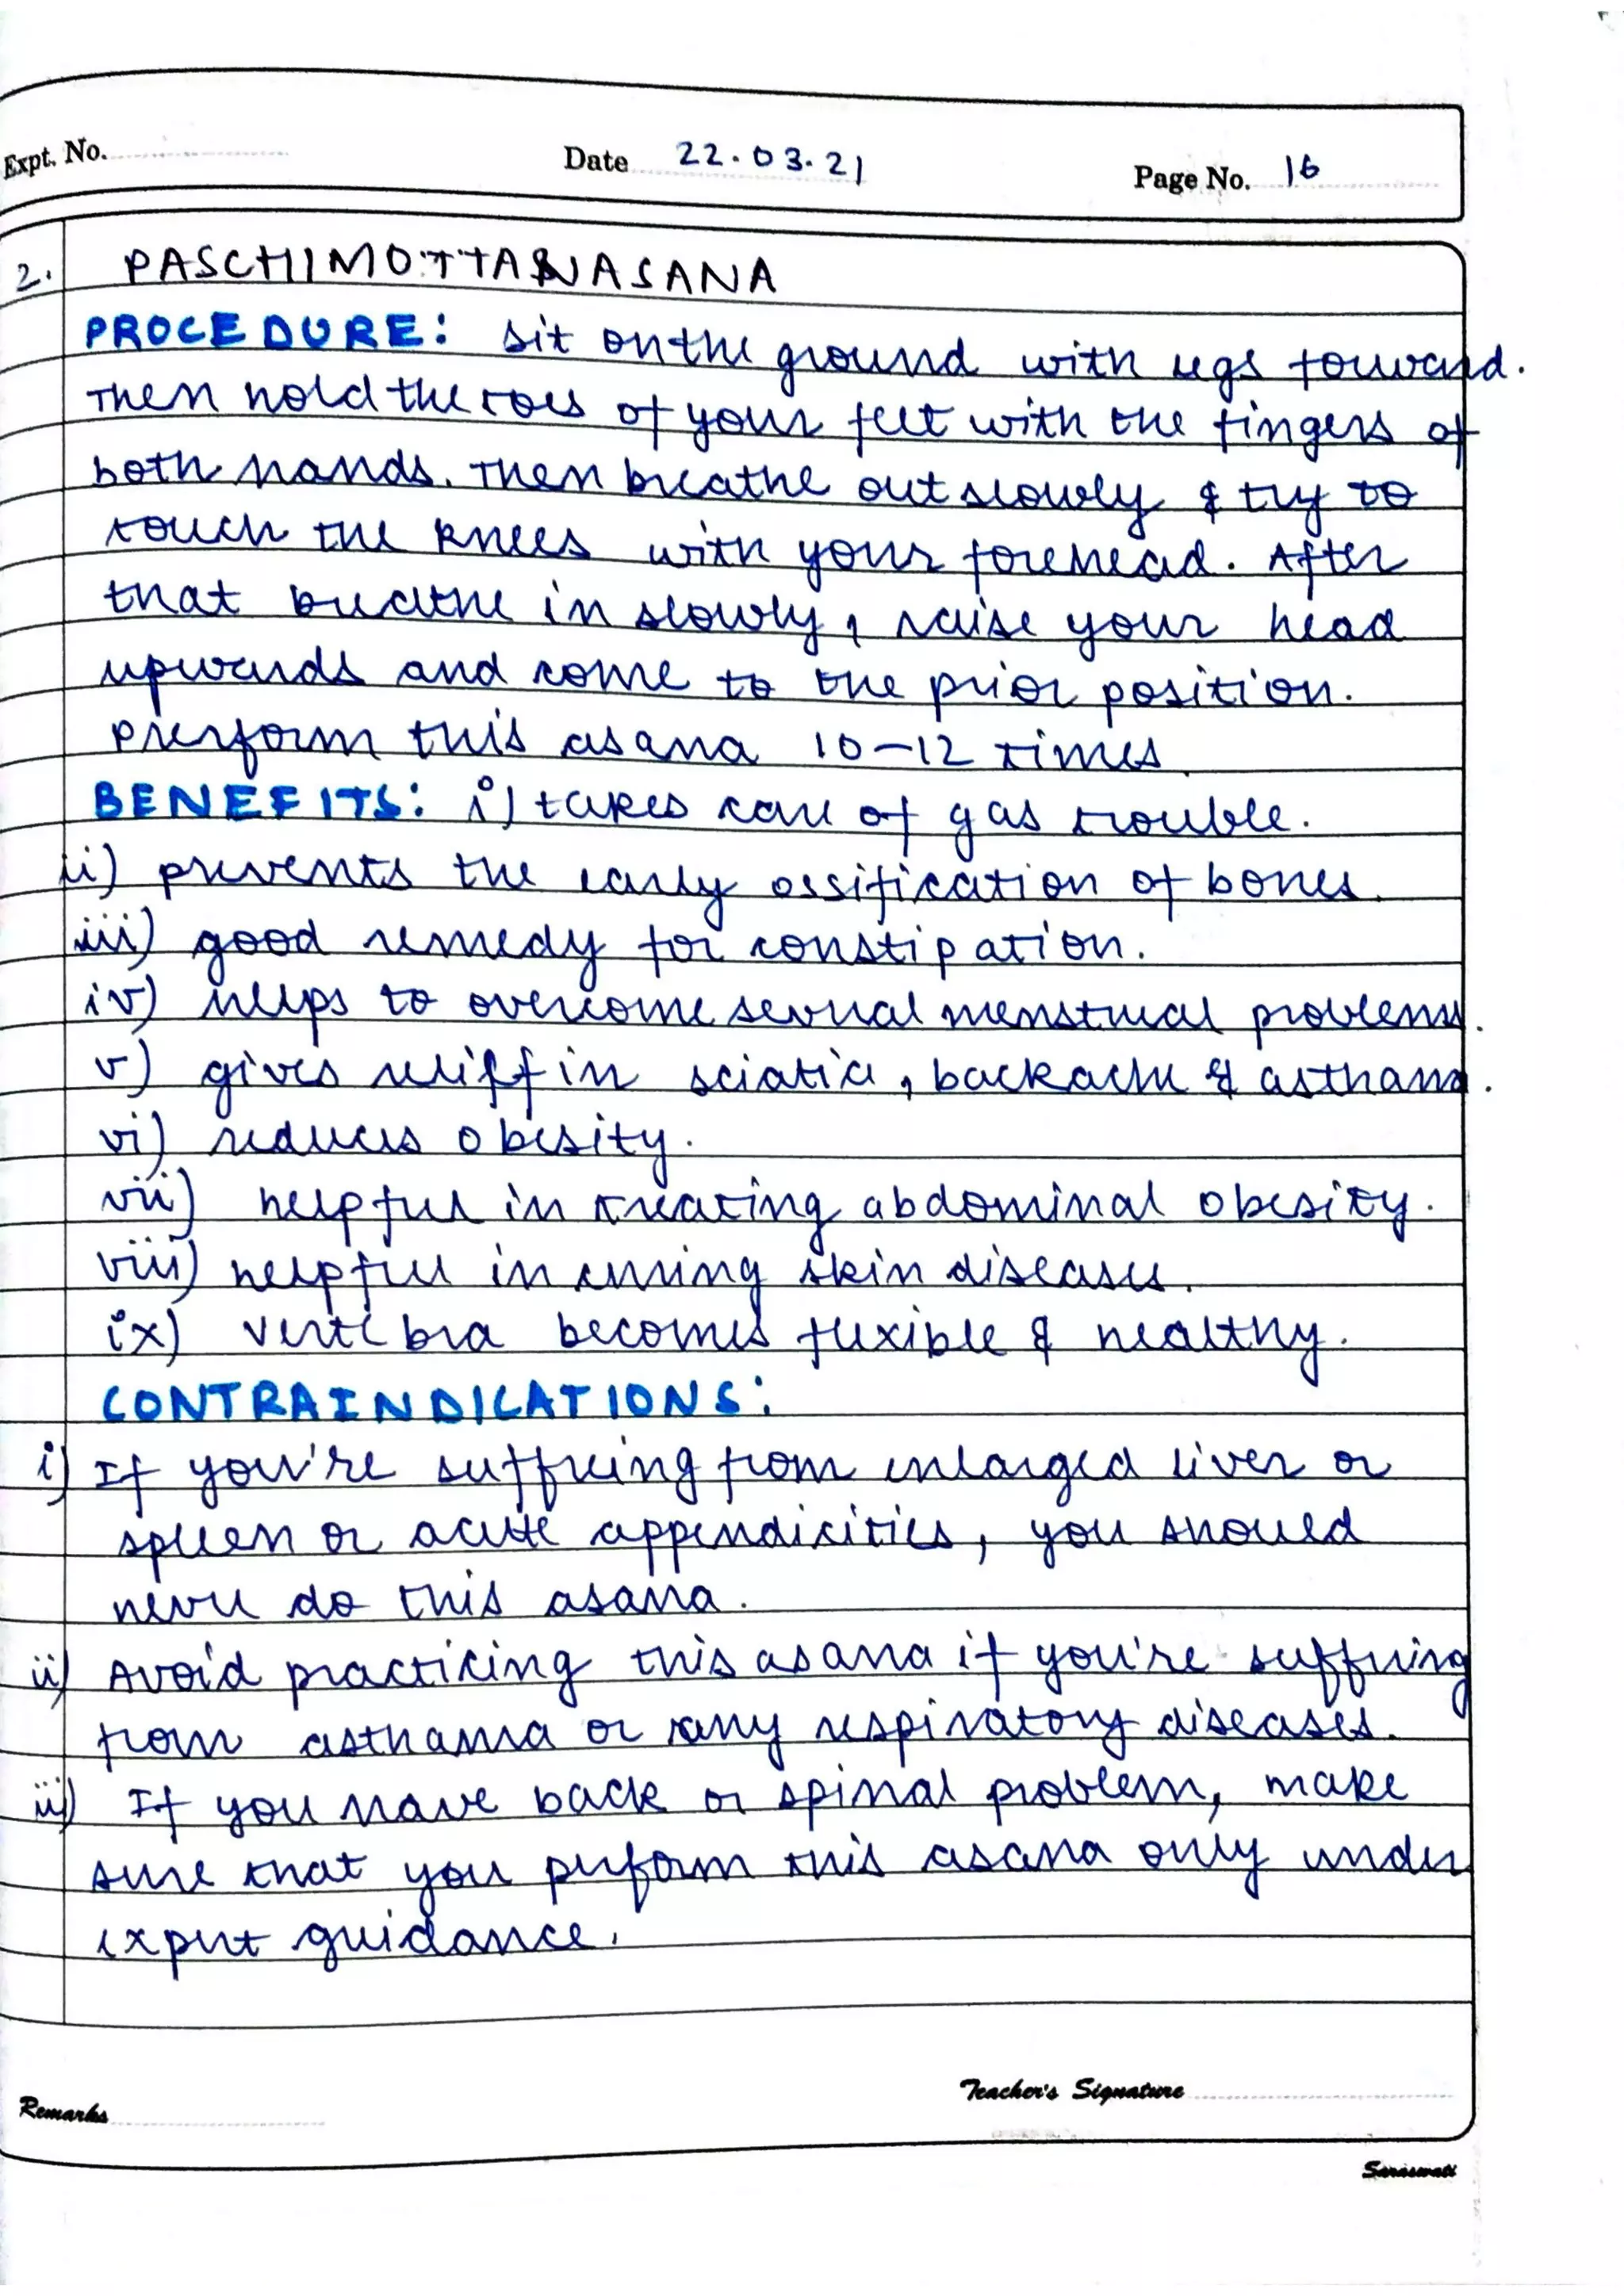 Expt. No.
Date 22.03.21
Page No. 16
2. PASCHIMOTTANASANA
PROCEDURE: sit on the ground with legs forward.
Then hold the toes of your feet with the fingers of
both hands. Then breathe out slowly & try to
touch the knees with your forehead. After
that breathe in slowly, raise your head
upwards and come to the prior position.
Prerform this asana 10-12 times
BENEFITS: i) takes care of gas trouble.
ii) prevents the early ossification of bones.
iii) good remedy for constipation.
iv) helps to overcome several menstrual problems.
v) gives relief in sciatica, backache & asthama.
vi) reduces obesity.
vii) helpful in treating abdominal obesity.
viii) helpful in curing skin diseases.
ix) vertebra becomes flexible & healthy.
CONTRAINDICATIONS:
i) If you're suffering from enlarged liver or
spleen or acute appendicities, you should
never do this asana.
ii) Avoid practicing this asana if you're suffering
from asthama or any respiratory diseases.
iii) If you have back or spinal problem, make
sure that you perform this asana only under
expert guidance.
Teacher's Signature
Remarks
Saraswati